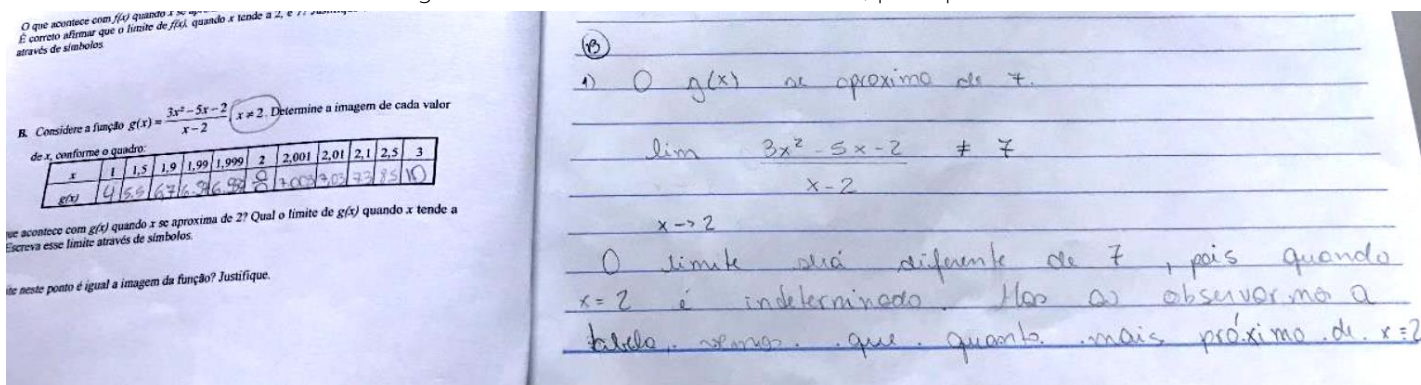 O que acontece com f(x) quando x se
É correto afirmar que o limite de f(x), quando x tende a 2, é 7?
através de símbolos.
B. Considere a função g(x) = (3x² - 5x - 2)/(x - 2), x ≠ 2. Determine a imagem de cada valor
de x, conforme o quadro:
x 1 1,5 1,9 1,99 1,999 2 2,001 2,01 2,1 2,5 3
g(x) 4 5.5 6,7 6.97 6.99 0/0 7.003 7,03 7.3 8.5 10
que acontece com g(x) quando x se aproxima de 2? Qual o limite de g(x) quando x tende a
Escreva esse limite através de símbolos.
neste ponto é igual a imagem da função? Justifique.
B
1) O g(x) se aproxima de 7.
lim (3x² - 5x - 2)/(x - 2) ≠ 7
x -> 2
O limite será diferente de 7, pois quando
x = 2 é indeterminado. Mas ao observarmos a
tabela, vemos que quanto mais próximo de x = 2